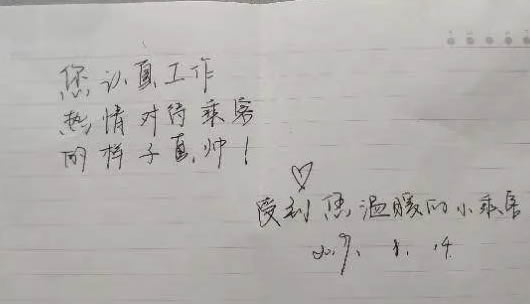 您认真工作
热情对待乘客
的样子真帅！
♡
受到您温暖的小乘客
2019. 8. 14.